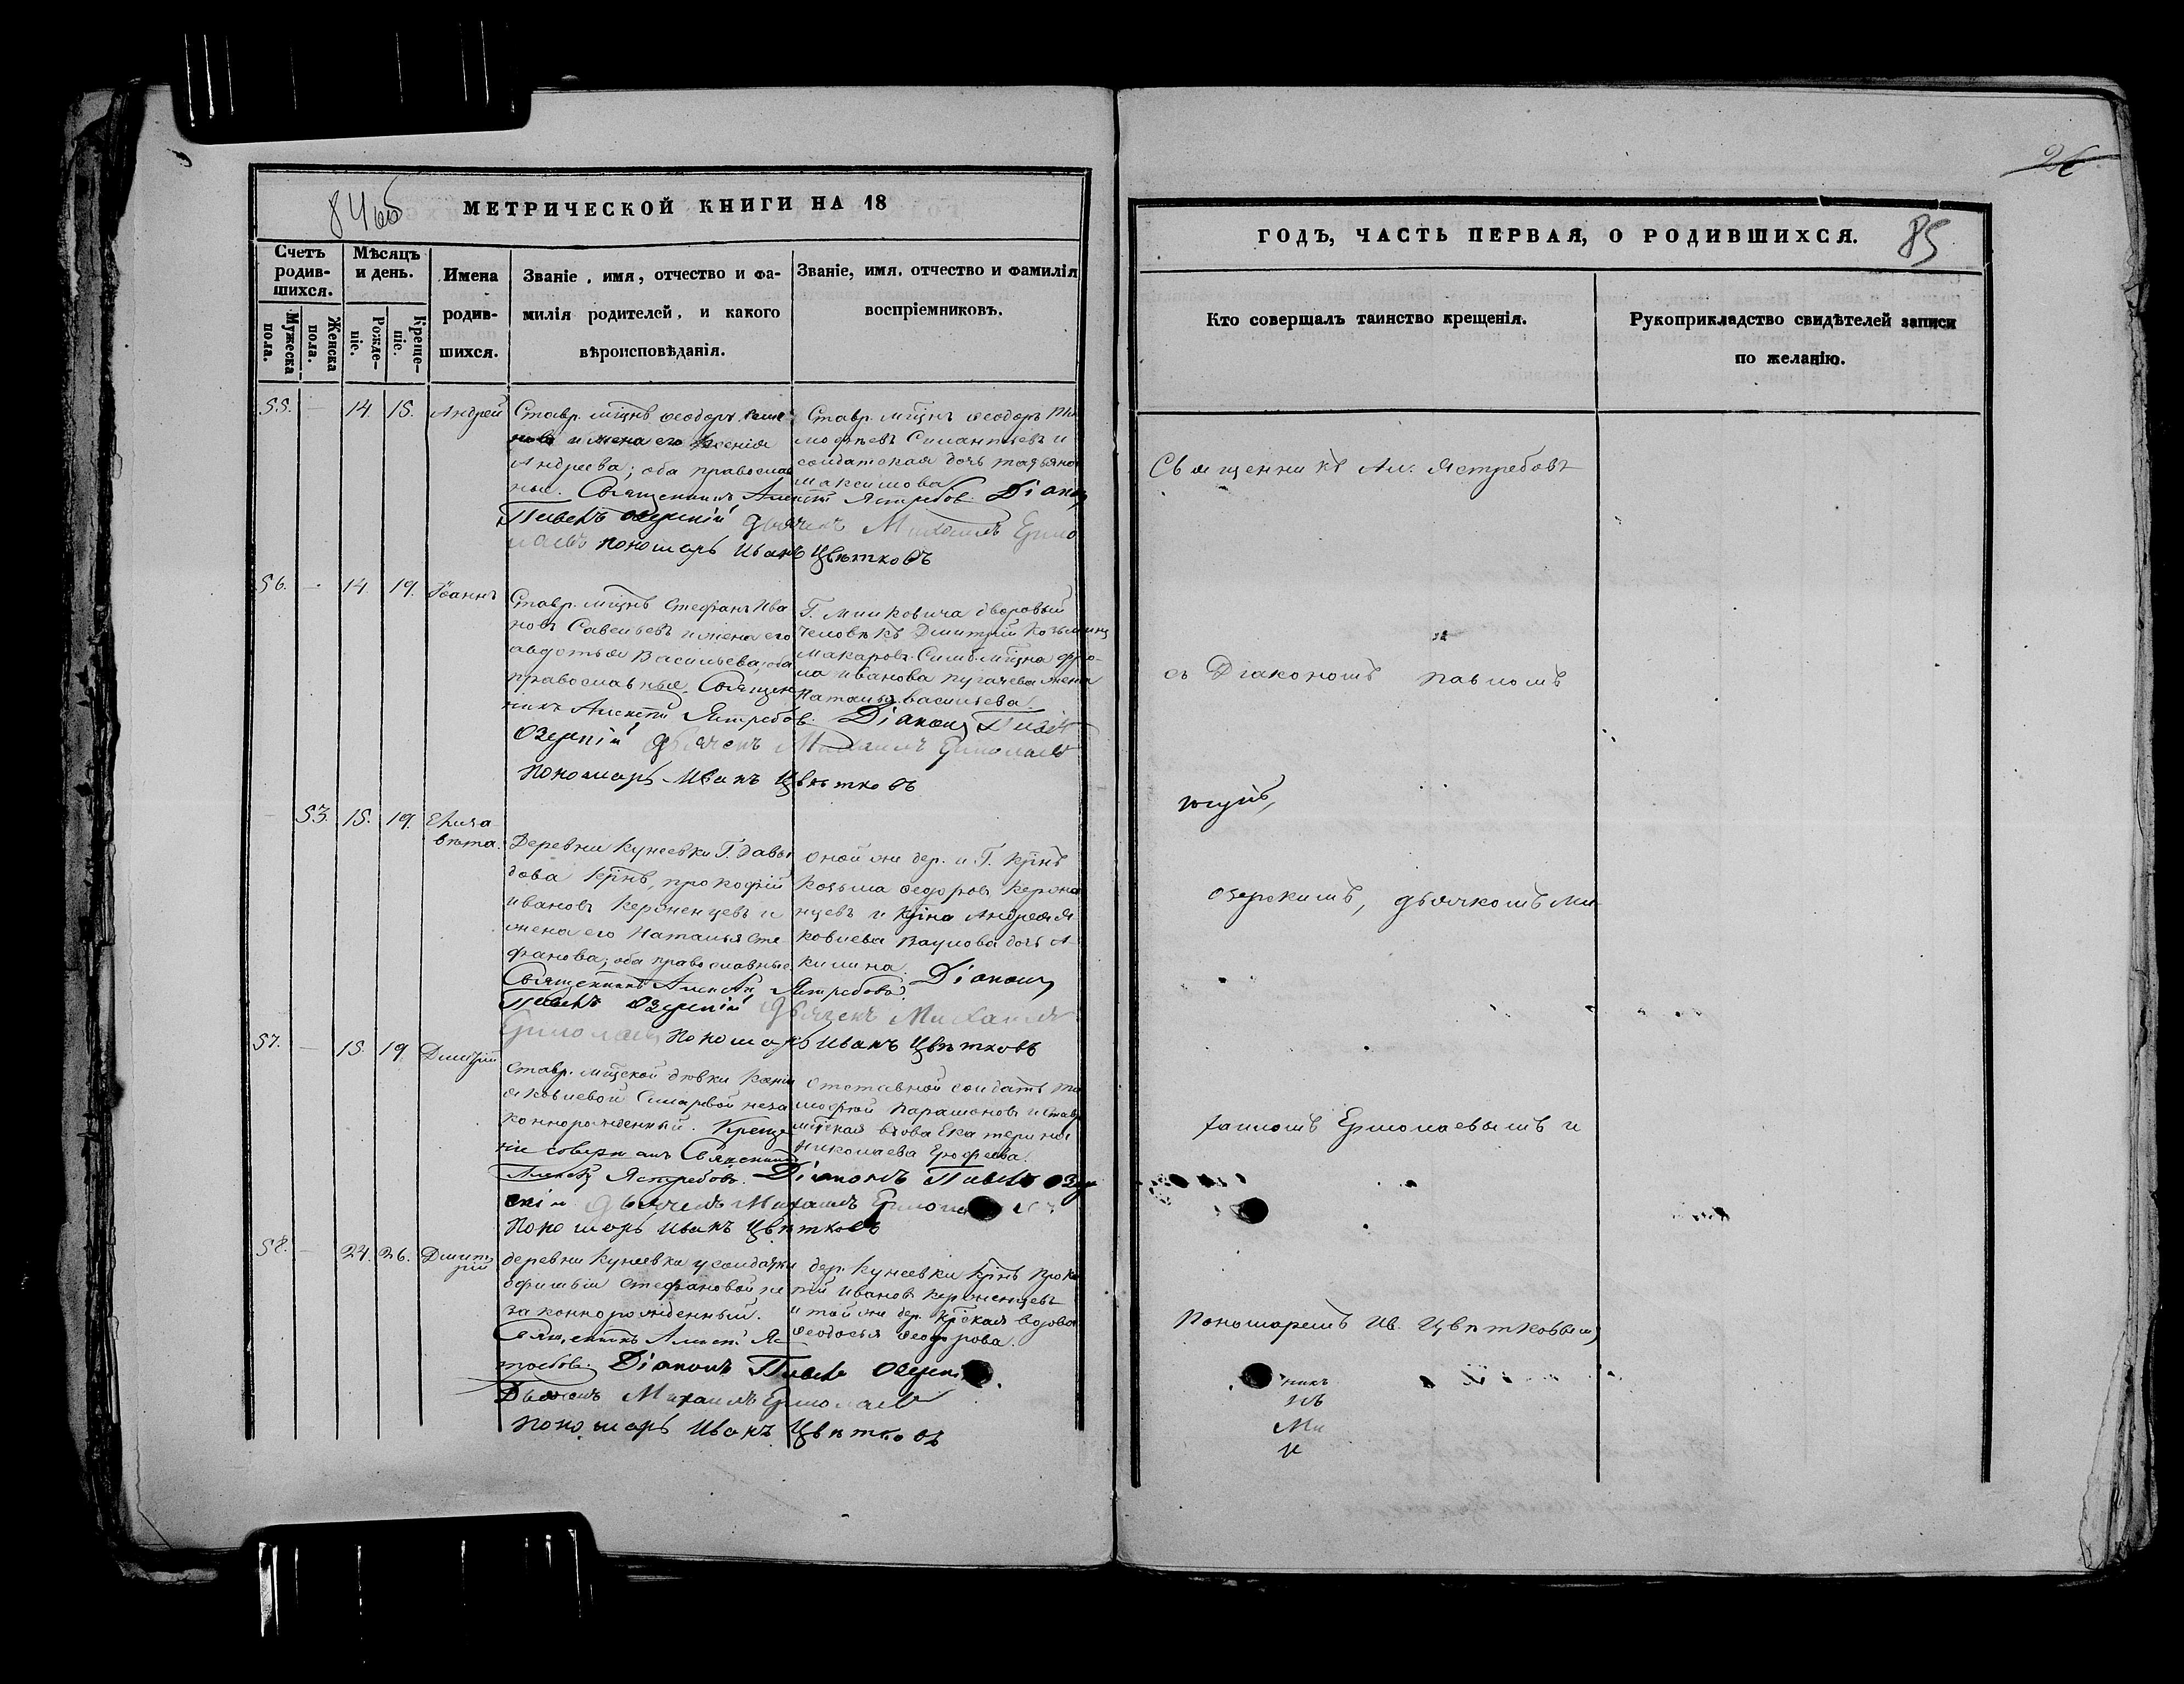 84об
МЕТРИЧЕСКОЙ КНИГИ НА 18
Счетъ родив-шихся.
Мужеска пола.
Женска пола.
Мѣсяцъ и день.
Рожде-ніе.
Креще-ніе.
Имена родив-шихся.
Званіе, имя, отчество и фа-
милія родителей, и какого
вѣроисповѣданія.
Званіе, имя, отчество и фамилія
воспріемниковъ.
55. — 14. 15. Андрей
Ставр. мщнъ Ѳеодоръ
и жена его Ксенія
Андреева; оба православ
ные. Священникъ Алексѣй Ястребовъ. Діаконъ
Павелъ Озерскій Дьячекъ Михаилъ Ермо
лаевъ Пономарь Иванъ Цвѣтковъ
Ставр. мщнъ Ѳеодоръ Ти
моѳѣевъ Силантьевъ и
солдатская дочь Татьяна
Максимова
56. — 14. 19. Іоаннъ
Ставр. мщнъ Стефанъ Ива
новъ Савельевъ и жена его
Авдотья Васильева, оба
православные. Священ
никъ Алексѣй Ястребовъ. Діаконъ Павелъ
Озерскій Дьячекъ Михаилъ Ермолаевъ
Пономарь Иванъ Цвѣтковъ
Г. Милковича дворовый
человѣкъ Димитрій Козьминъ
Макаровъ. Симб. мщна Фро-
ла Иванова Пугачева жена
Наталья Васильева
— 53. 15. 19. Елиза
вѣта.
Деревни Кунеевки Г. Давы
дова крнъ, Прокофій
Ивановъ Керженцевъ и
жена его Наталья Сте
фанова; оба православные.
Священникъ Алексѣй Ястребовъ. Діаконъ
Павелъ Озерскій Дьячекъ Михаилъ
Ермолаевъ Пономарь Иванъ Цвѣтковъ
оной же дер. и Г. крнъ
Козьма Ѳедоровъ Керже
нцевъ и крна Андрея Я
ковлева Ваулова дочь А
килина.
57. — 15. 19. Димитрій
Ставр. мщской дѣвки Ксеніи
Яковлевой неза
коннорожденный. Креще
ніе совершалъ Священникъ
Алексѣй Ястребовъ. Діаконъ Павелъ Озер
скій Дьячекъ Михаилъ Ермолаевъ
Пономарь Иванъ Цвѣтковъ
отставной солдатъ Ти
моѳей Парамоновъ и Ставр.
мщская вдова Екатерина
Николаева Ерофеева.
58. — 24. 26. Димит
рій
деревни Кунеевки у солдатки
Ефимьи Стефановой не
законнорожденный.
Священникъ Алексѣй Яс
требовъ. Діаконъ Павелъ Озерскій
Дьячекъ Михаилъ Ермолаевъ
Пономарь Иванъ Цвѣтковъ
дер. Кунеевки крнъ Проко
пій Ивановъ Керженцевъ
и той же дер. крская вдова
Ѳеодосья Ѳеодорова.
26
85
ГОДЪ, ЧАСТЬ ПЕРВАЯ, О РОДИВШИХСЯ.
Кто совершалъ таинство крещенія.
Рукоприкладство свидѣтелей записи
по желанію.
Священникъ Ал. Ястребовъ
съ Діакономъ Павломъ
Озерскимъ, дьячкомъ Ми
хаиломъ Ермолаевымъ и
Пономаремъ Ив. Цвѣтковымъ
никъ
нъ
Ми
и